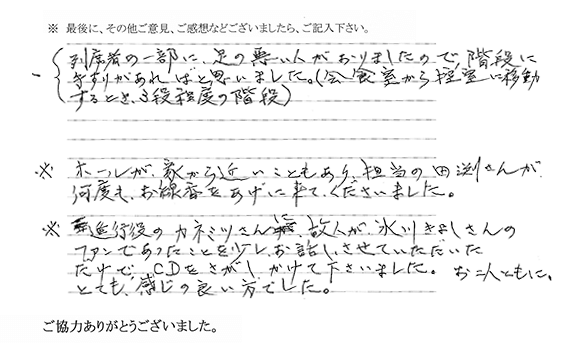 ※ 最後に、その他ご意見、ご感想などございましたら、ご記入下さい。
列席者の一部に、足の悪い人がおりましたので、階段に
手すりがあればと思いました。(会食室から控室に移動
するとき、3段程度の階段)
※ ホールが、家から近いこともあり、担当の田渕さんが
何度も、お線香をあげに来て、くださいました。
※ 進行役のカネミツさんに、故人が、氷川きよしさんの
ファンであったことを少しお話しさせていただいた
だけで、CDをさがしかけて下さいました。お二人ともに、
とても、感じの良い方でした。
ご協力ありがとうございました。